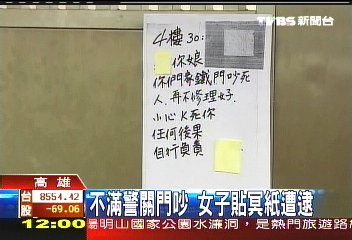 TVBS 新聞台
4樓30:
你娘
你們家鐵門吵死
人,再不修理好.
小心K死你
任何後果
自行負責
高雄
台股 8554.42
-69.06
不滿警關門吵 女子貼冥紙遭逮
12:00 陽明山國家公園水濂洞,是熱門旅遊路